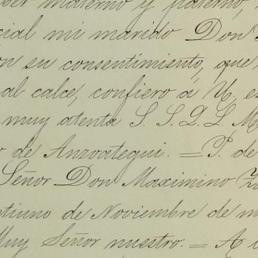 por materno y paterno,
cial mi marido Don
on su consentimiento, que
al calce, confiero á U. es
muy atenta S. S. Q. L. M
r de Anzoategui. = P. de
Señor Don Maximino
ntiuno de Noviembre de m
Muy Señor nuestro. = A